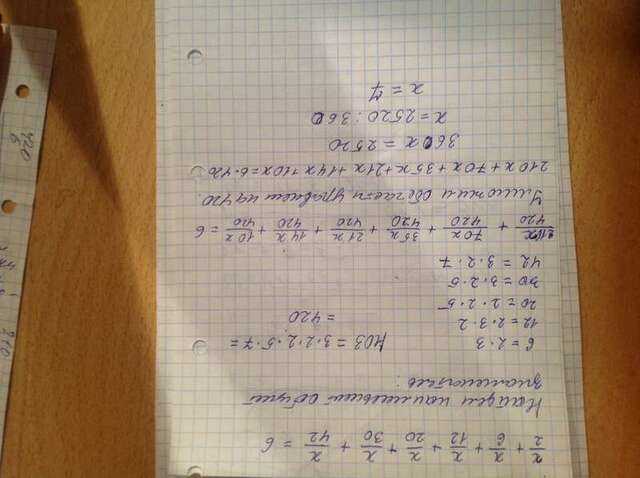 x/2 + x/6 + x/12 + x/20 + x/30 + x/42 = 6
Найдем наименьший общий
знаменатель:
6 = 2·3 НОЗ = 3·2·2·5·7 =
12 = 2·3·2 = 420
20 = 2·2·5
30 = 3·2·5
42 = 3·2·7
x/420 + 70x/420 + 35x/420 + 21x/420 + 14x/420 + 10x/420 = 6
Умножим обе части уравнения на 420.
210x + 70x + 35x + 21x + 14x + 10x = 6·420
360x = 2520
x = 2520 : 360
x = 7
420
6
210